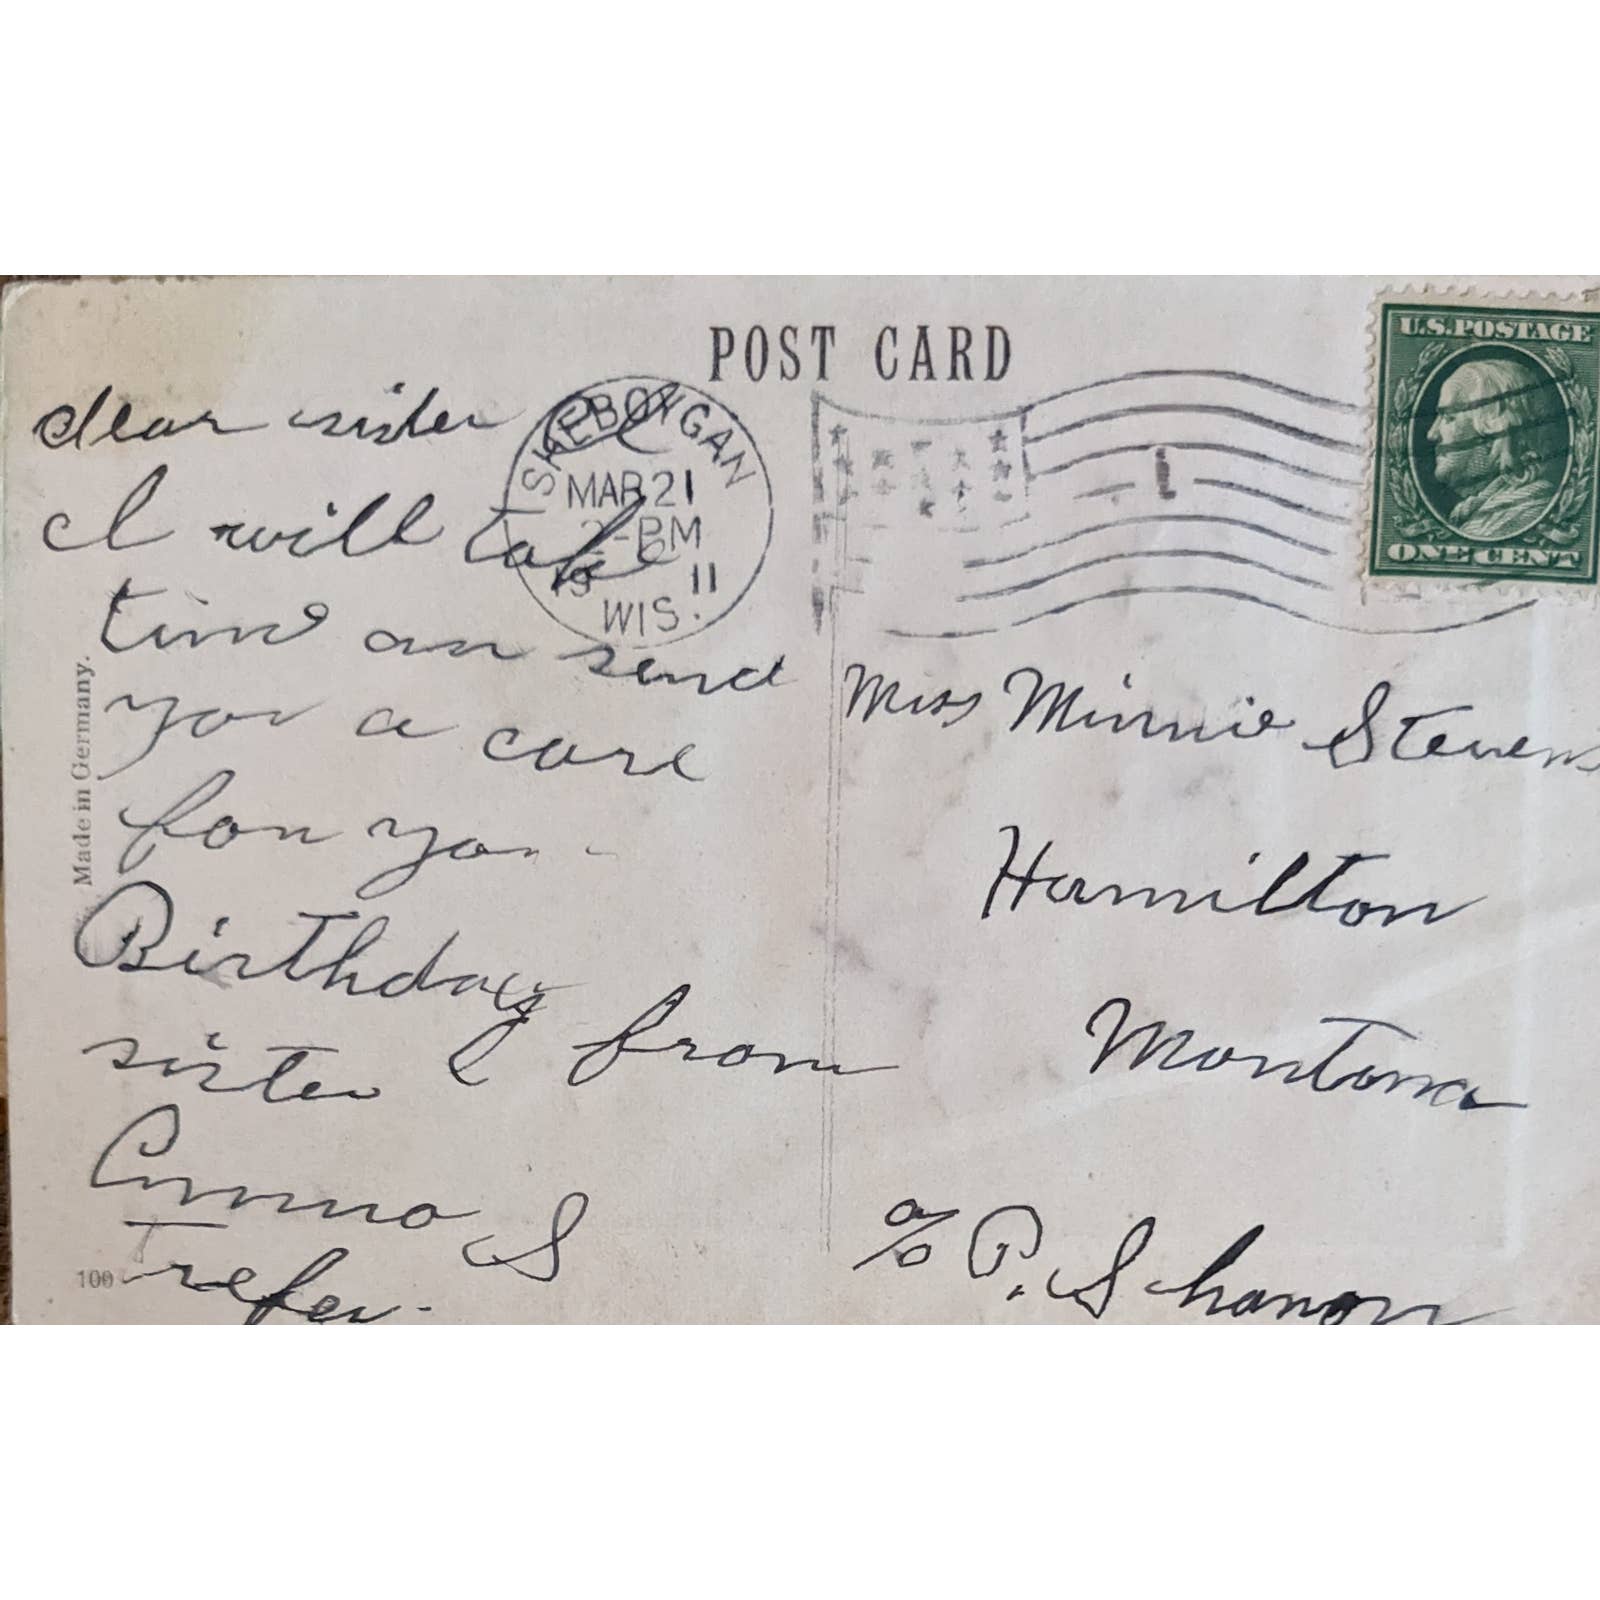 POST CARD
U.S. POSTAGE
ONE CENT
SHEBOYGAN
MAR 21
2-PM
19 11
WIS.
dear sister
I will take
time an send
you a care
for you
Birthday
sister from
S
Miss Minnie Stevens
Hamilton
Montana
c/o P. Shanon
Made in Germany.
100